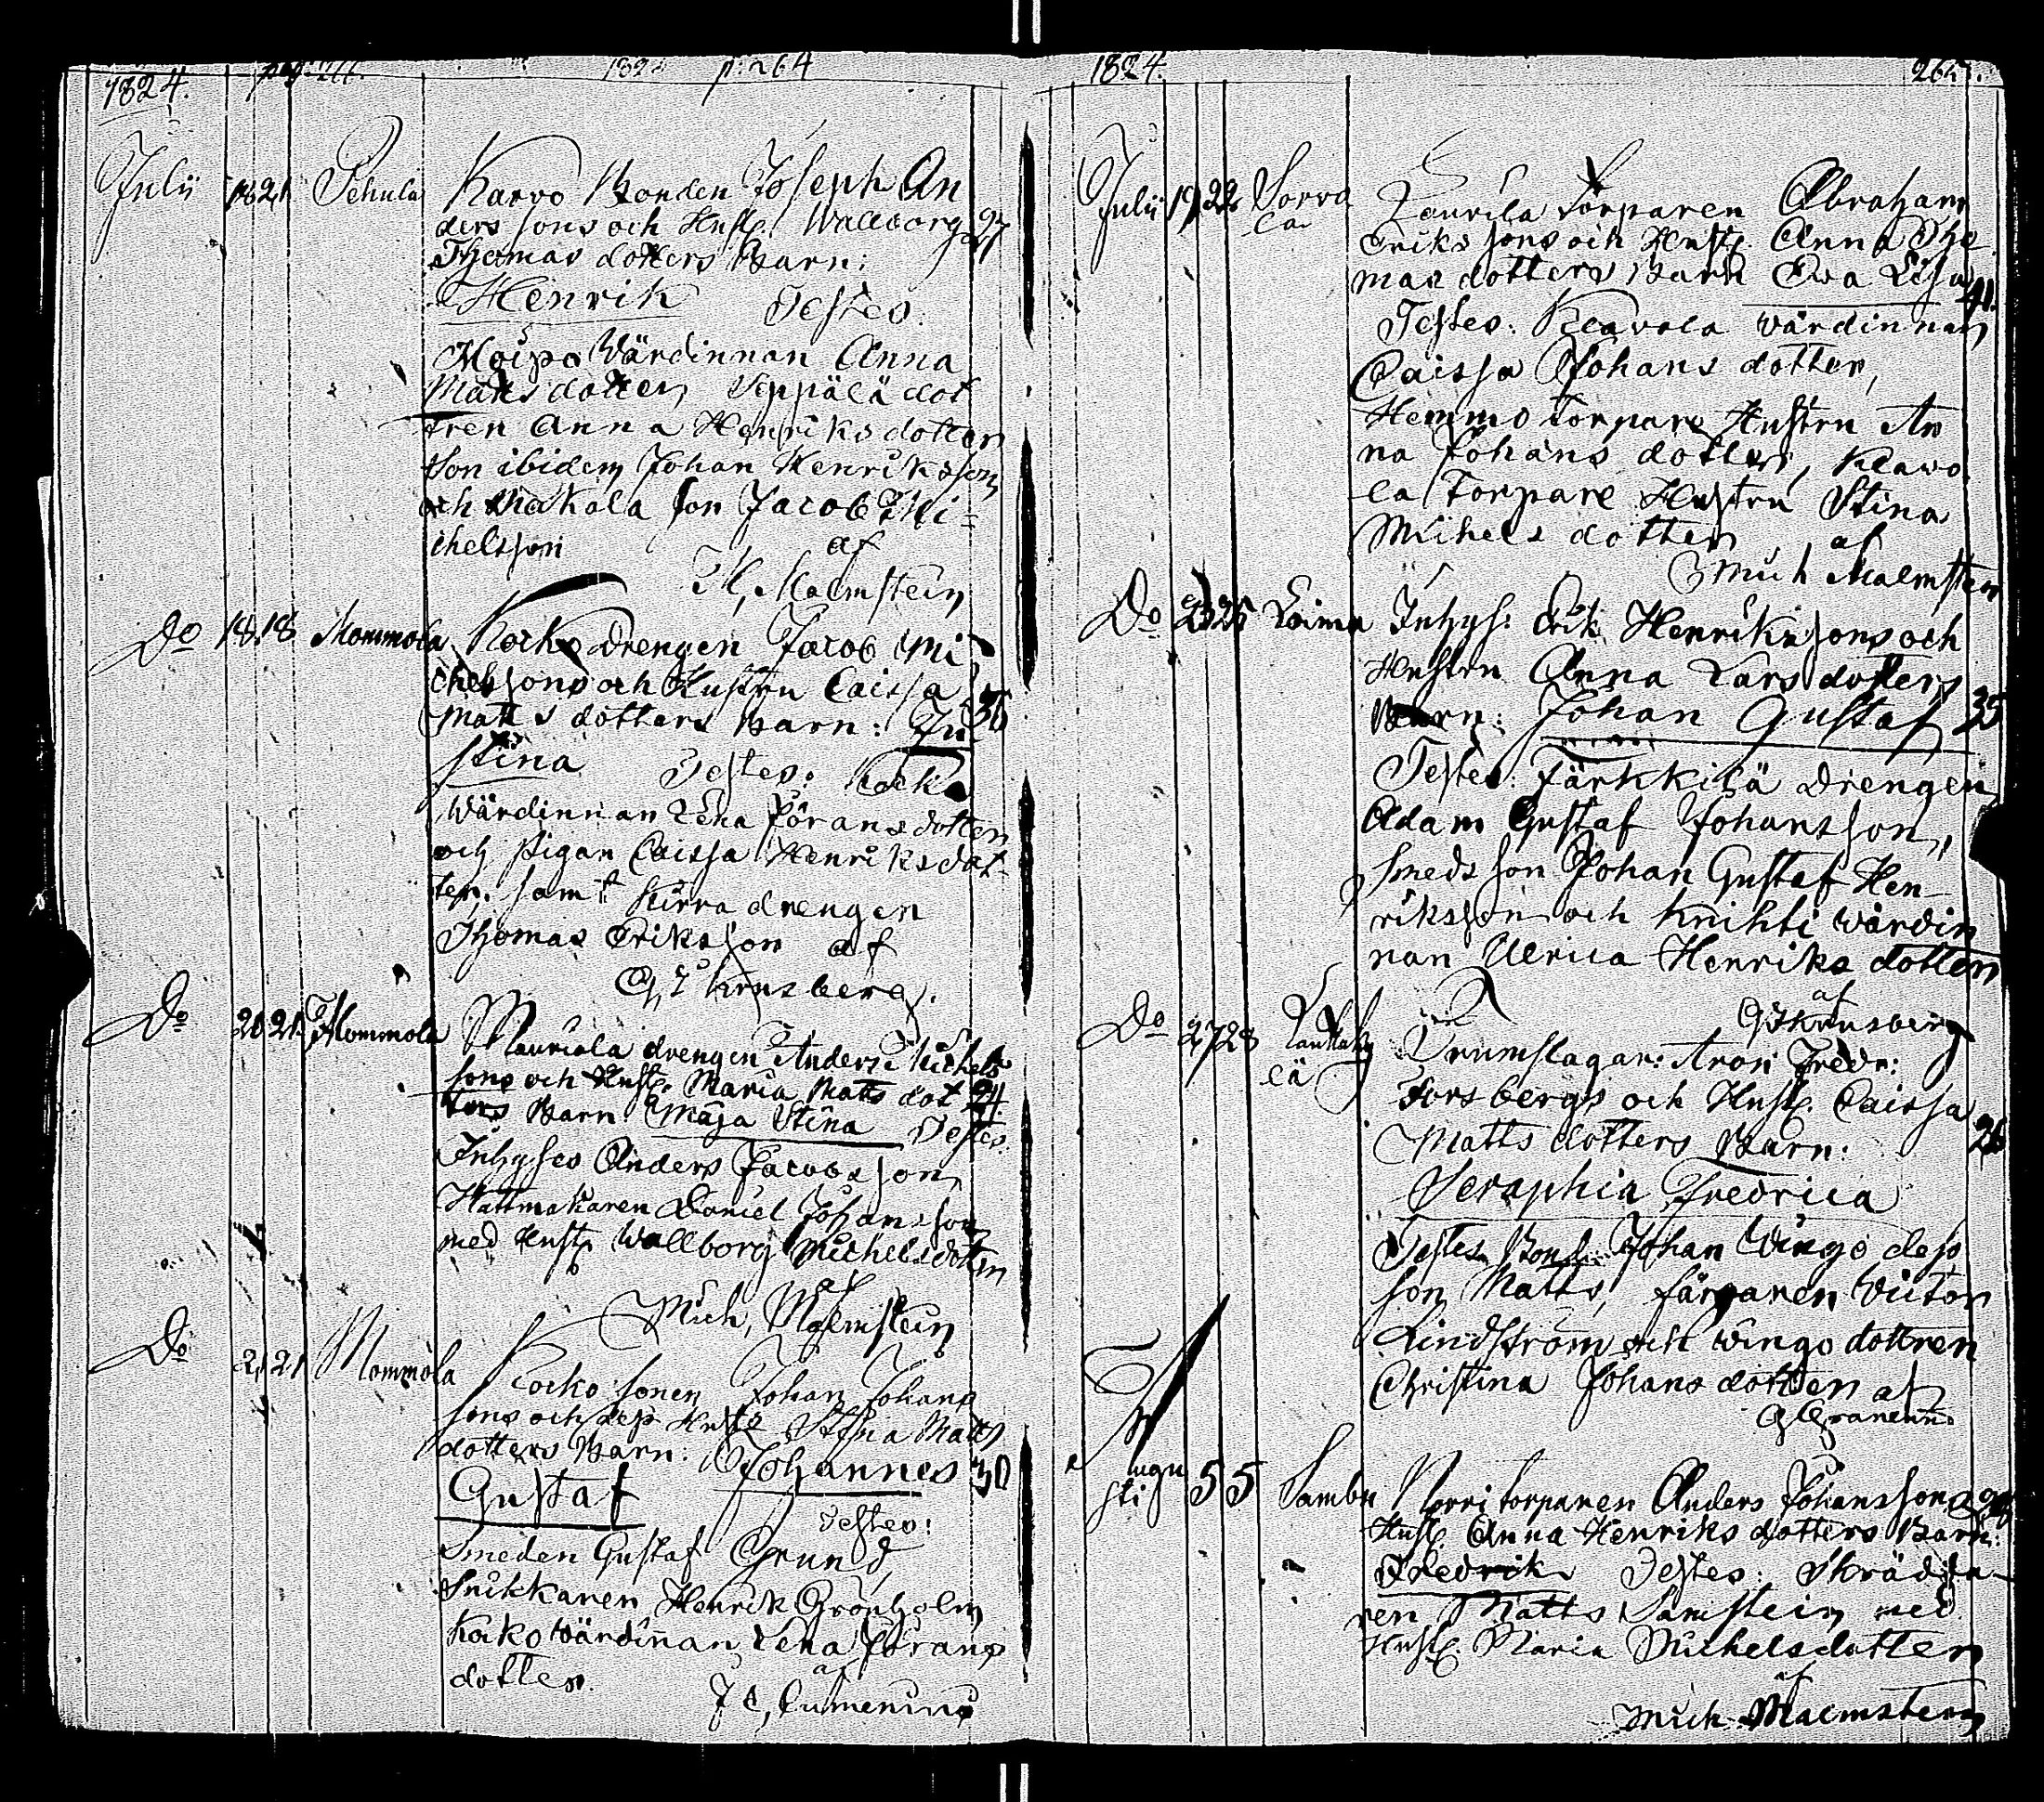 1824. p: 264
Julii 18 21 Pehula Karvo Bonden Joseph An
ders sons och Hust. Wallborg 27
Thomas dotters Barn:
Henrik Testes:
Moipo Wärdinnan Anna
Matts dotter, Seppälä dot
tren Anna Henriks dotter
Son ibidem Johan Henriksson
och Mickola son Jacob Mi=
chelsson af
M, Malmstein
Do 18 18 Mommola Kocko drengen Jacob Mi
chelssons och Hustru Caissa 36
Matts dotters Barn: Ju
stina Testes: Kocko
Wärdinnan Lena Jörans dotter
och Pigan Caissa Henriks dot
ter, samt Kurra drengen
Thomas Eriksson af
G, Z Krusberg.
Do 20 21 Mommola Mauriala drengen Anders Michels
sons och Hust. Maria Matts dot 24
ters Barn Maja Stina Testes:
Inhyses Anders Jacobsson,
Hattmakaren Daniel Johansson
med Hust. Wallborg Michelsdotter
af
Mich, Malmstein
Do 21 21 Mommola Kocko sonen Johan Johans
sons och dess Hust. Stina Matts
dotters Barn: Johannes 30
Gustaf
Testes:
Smeden Gustaf Grund,
Snikkaren Henrik Grönholm
Kocko Wärdinnan Lena Jörans
dotter. af
J C, Cumenius
1824. 265.
Julii 19 22 Sorva Laurila Torparen Abraham
la Eriks sons och Hust. Anna Tho
mas dotters Barn Ewa Lisa 41.
Testes: Klavola Wärdinnan
Caissa Johans dotter,
Hemmo Torpare Hustru An
na Johans dotter, Klavo
la Torpare Hustru Stina
Michels dotter af
Mich Malmsten
Do 23 25 Loima Inhys: Erik Henrikssons och
Hustru Anna Lars dotters
Barn: Johan Gustaf 35
Testes: Färkkilä Drengen
Adam Gustaf Johansson,
Smeds son Johan Gustaf Hen
riksson och Knihti Wärdin
nan Ulrica Henriks dotter
af
G Z Krusberg
Do 27 28 Lauttaky Trumslagar: Aron Fredr:
lä Forsbergs och Hust. Caissa
Matts dotters Barn: 26
Seraphia Fredrica
Testes Bond: Johan Wingo dess
son Matts, färgaren Victor
Lindström och Wingo dottren
Christina Johans dotter af
G Granenn
Augu
sti 5 5 Sambu Norri torparen Anders Johanssons
Hust. Anna Henriks dotters Barn:
Fredrik Testes: Skrädda
ren Matts Samstein med
Hust. Maria Michelsdotter
af
Mich Malmstein